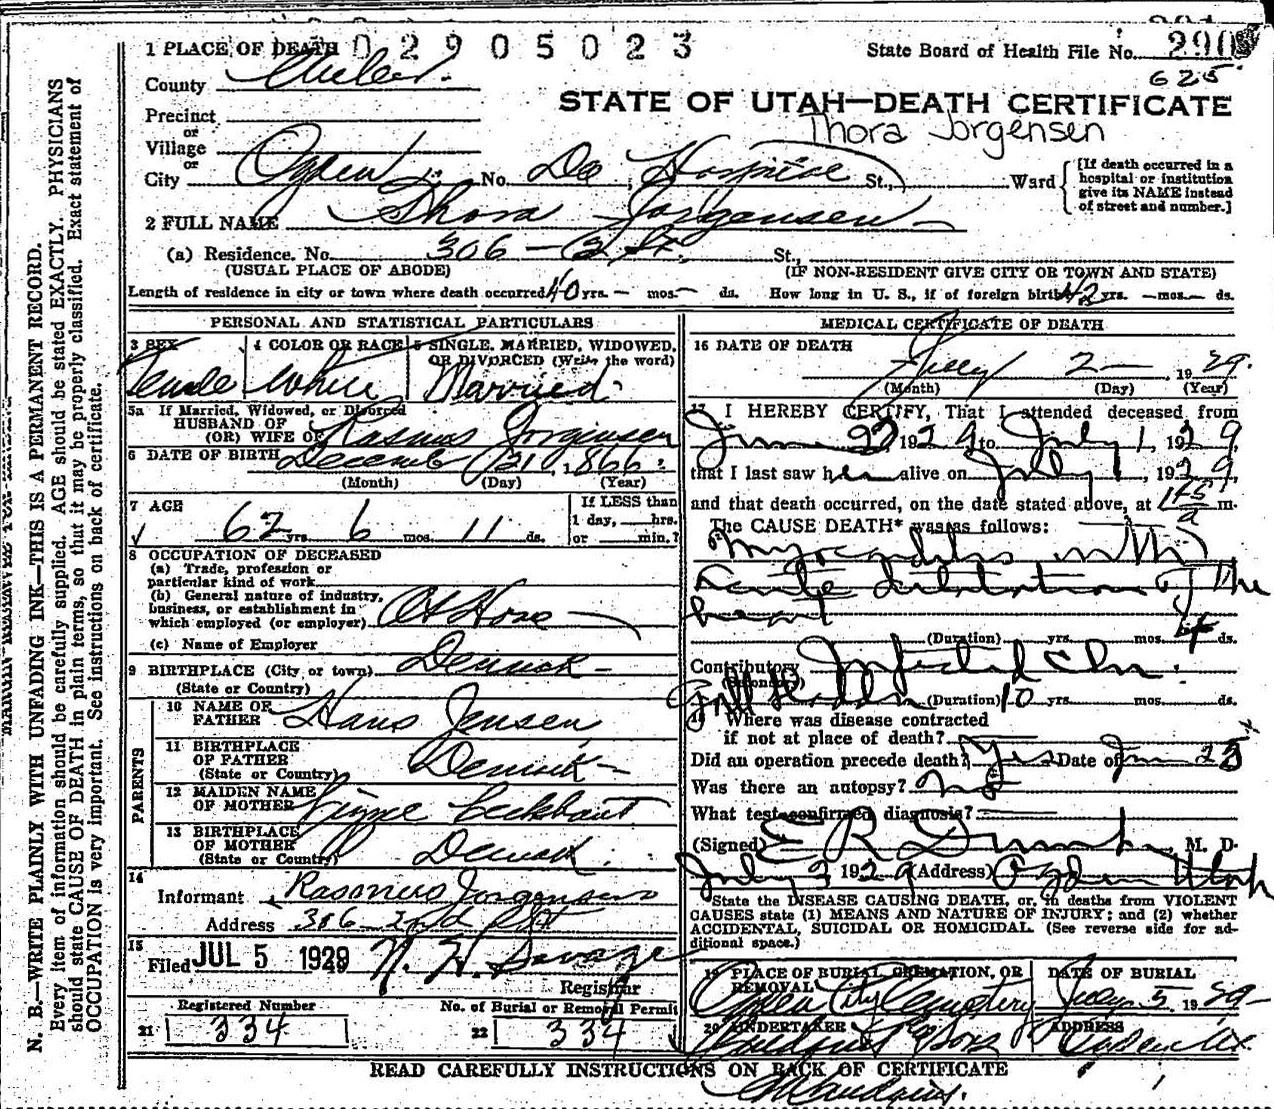 1 PLACE OF DEATH 0 2 9 0 5 0 2 3 State Board of Health File No. 290
County Weber. 625
STATE OF UTAH—DEATH CERTIFICATE
Precinct
or
Village
or
Thora Jorgensen
City Ogden No. Dee Hospital St., Ward [If death occurred in a hospital or institution give its NAME instead of street and number.]
2 FULL NAME Thora Jorgensen
(a) Residence. No. 306 - 2 St. St.,
(USUAL PLACE OF ABODE) (IF NON-RESIDENT GIVE CITY OR TOWN AND STATE)
Length of residence in city or town where death occurred 40 yrs. — mos. — ds. How long in U. S., if of foreign birth 42 yrs. — mos. — ds.
PERSONAL AND STATISTICAL PARTICULARS
3 SEX 4 COLOR OR RACE 5 SINGLE, MARRIED, WIDOWED,
OR DIVORCED (Write the word)
Female White Married
5a If Married, Widowed, or Divorced
HUSBAND OF
(OR) WIFE OF Rasmus Jorgensen
6 DATE OF BIRTH December 21, 1866
(Month) (Day) (Year)
7 AGE If LESS than
62 yrs. 6 mos. 11 ds. 1 day, hrs.
or min.?
8 OCCUPATION OF DECEASED
(a) Trade, profession or
particular kind of work
(b) General nature of industry,
business, or establishment in
which employed (or employer) At Home
(c) Name of Employer
9 BIRTHPLACE (City or town)
(State or Country)
PARENTS
10 NAME OF
FATHER Hans Jensen
11 BIRTHPLACE
OF FATHER
(State or Country)
12 MAIDEN NAME
OF MOTHER
13 BIRTHPLACE
OF MOTHER
(State or Country)
14
Informant Rasmus Jorgensen
Address 306 - 2nd St
15
Filed JUL 5 1929
Registrar
Registered Number No. of Burial or Removal Permit
21 334 22 334
MEDICAL CERTIFICATE OF DEATH
16 DATE OF DEATH
July 2 — 1929.
(Month) (Day) (Year)
17 I HEREBY CERTIFY, That I attended deceased from
June 22, 1929 to July 1, 1929,
that I last saw her alive on July 1, 1929,
and that death occurred, on the date stated above, at m.
The CAUSE DEATH* was as follows:
Myocarditis with
acute dilatation of the
heart
(Duration) yrs. mos. ds.
Contributory Infected
(Secondary)
Gall bladder (Duration) 10 yrs. mos. ds.
18 Where was disease contracted
if not at place of death?
Did an operation precede death? Yes Date of
Was there an autopsy? no
What test confirmed diagnosis?
(Signed) E R M. D.
July 3 1929 (Address) Ogden Utah
*State the DISEASE CAUSING DEATH, or, in deaths from VIOLENT
CAUSES state (1) MEANS AND NATURE OF INJURY; and (2) whether
ACCIDENTAL, SUICIDAL OR HOMICIDAL. (See reverse side for ad-
ditional space.)
19 PLACE OF BURIAL, CREMATION, OR DATE OF BURIAL
REMOVAL
Ogden City Cemetery July 5 1929
20 UNDERTAKER ADDRESS
& Sons Ogden
READ CAREFULLY INSTRUCTIONS ON BACK OF CERTIFICATE
N. B.—WRITE PLAINLY WITH UNFADING INK—THIS IS A PERMANENT RECORD.
Every item of information should be carefully supplied. AGE should be stated EXACTLY. PHYSICIANS
should state CAUSE OF DEATH in plain terms, so that it may be properly classified. Exact statement of
OCCUPATION is very important. See instructions on back of certificate.